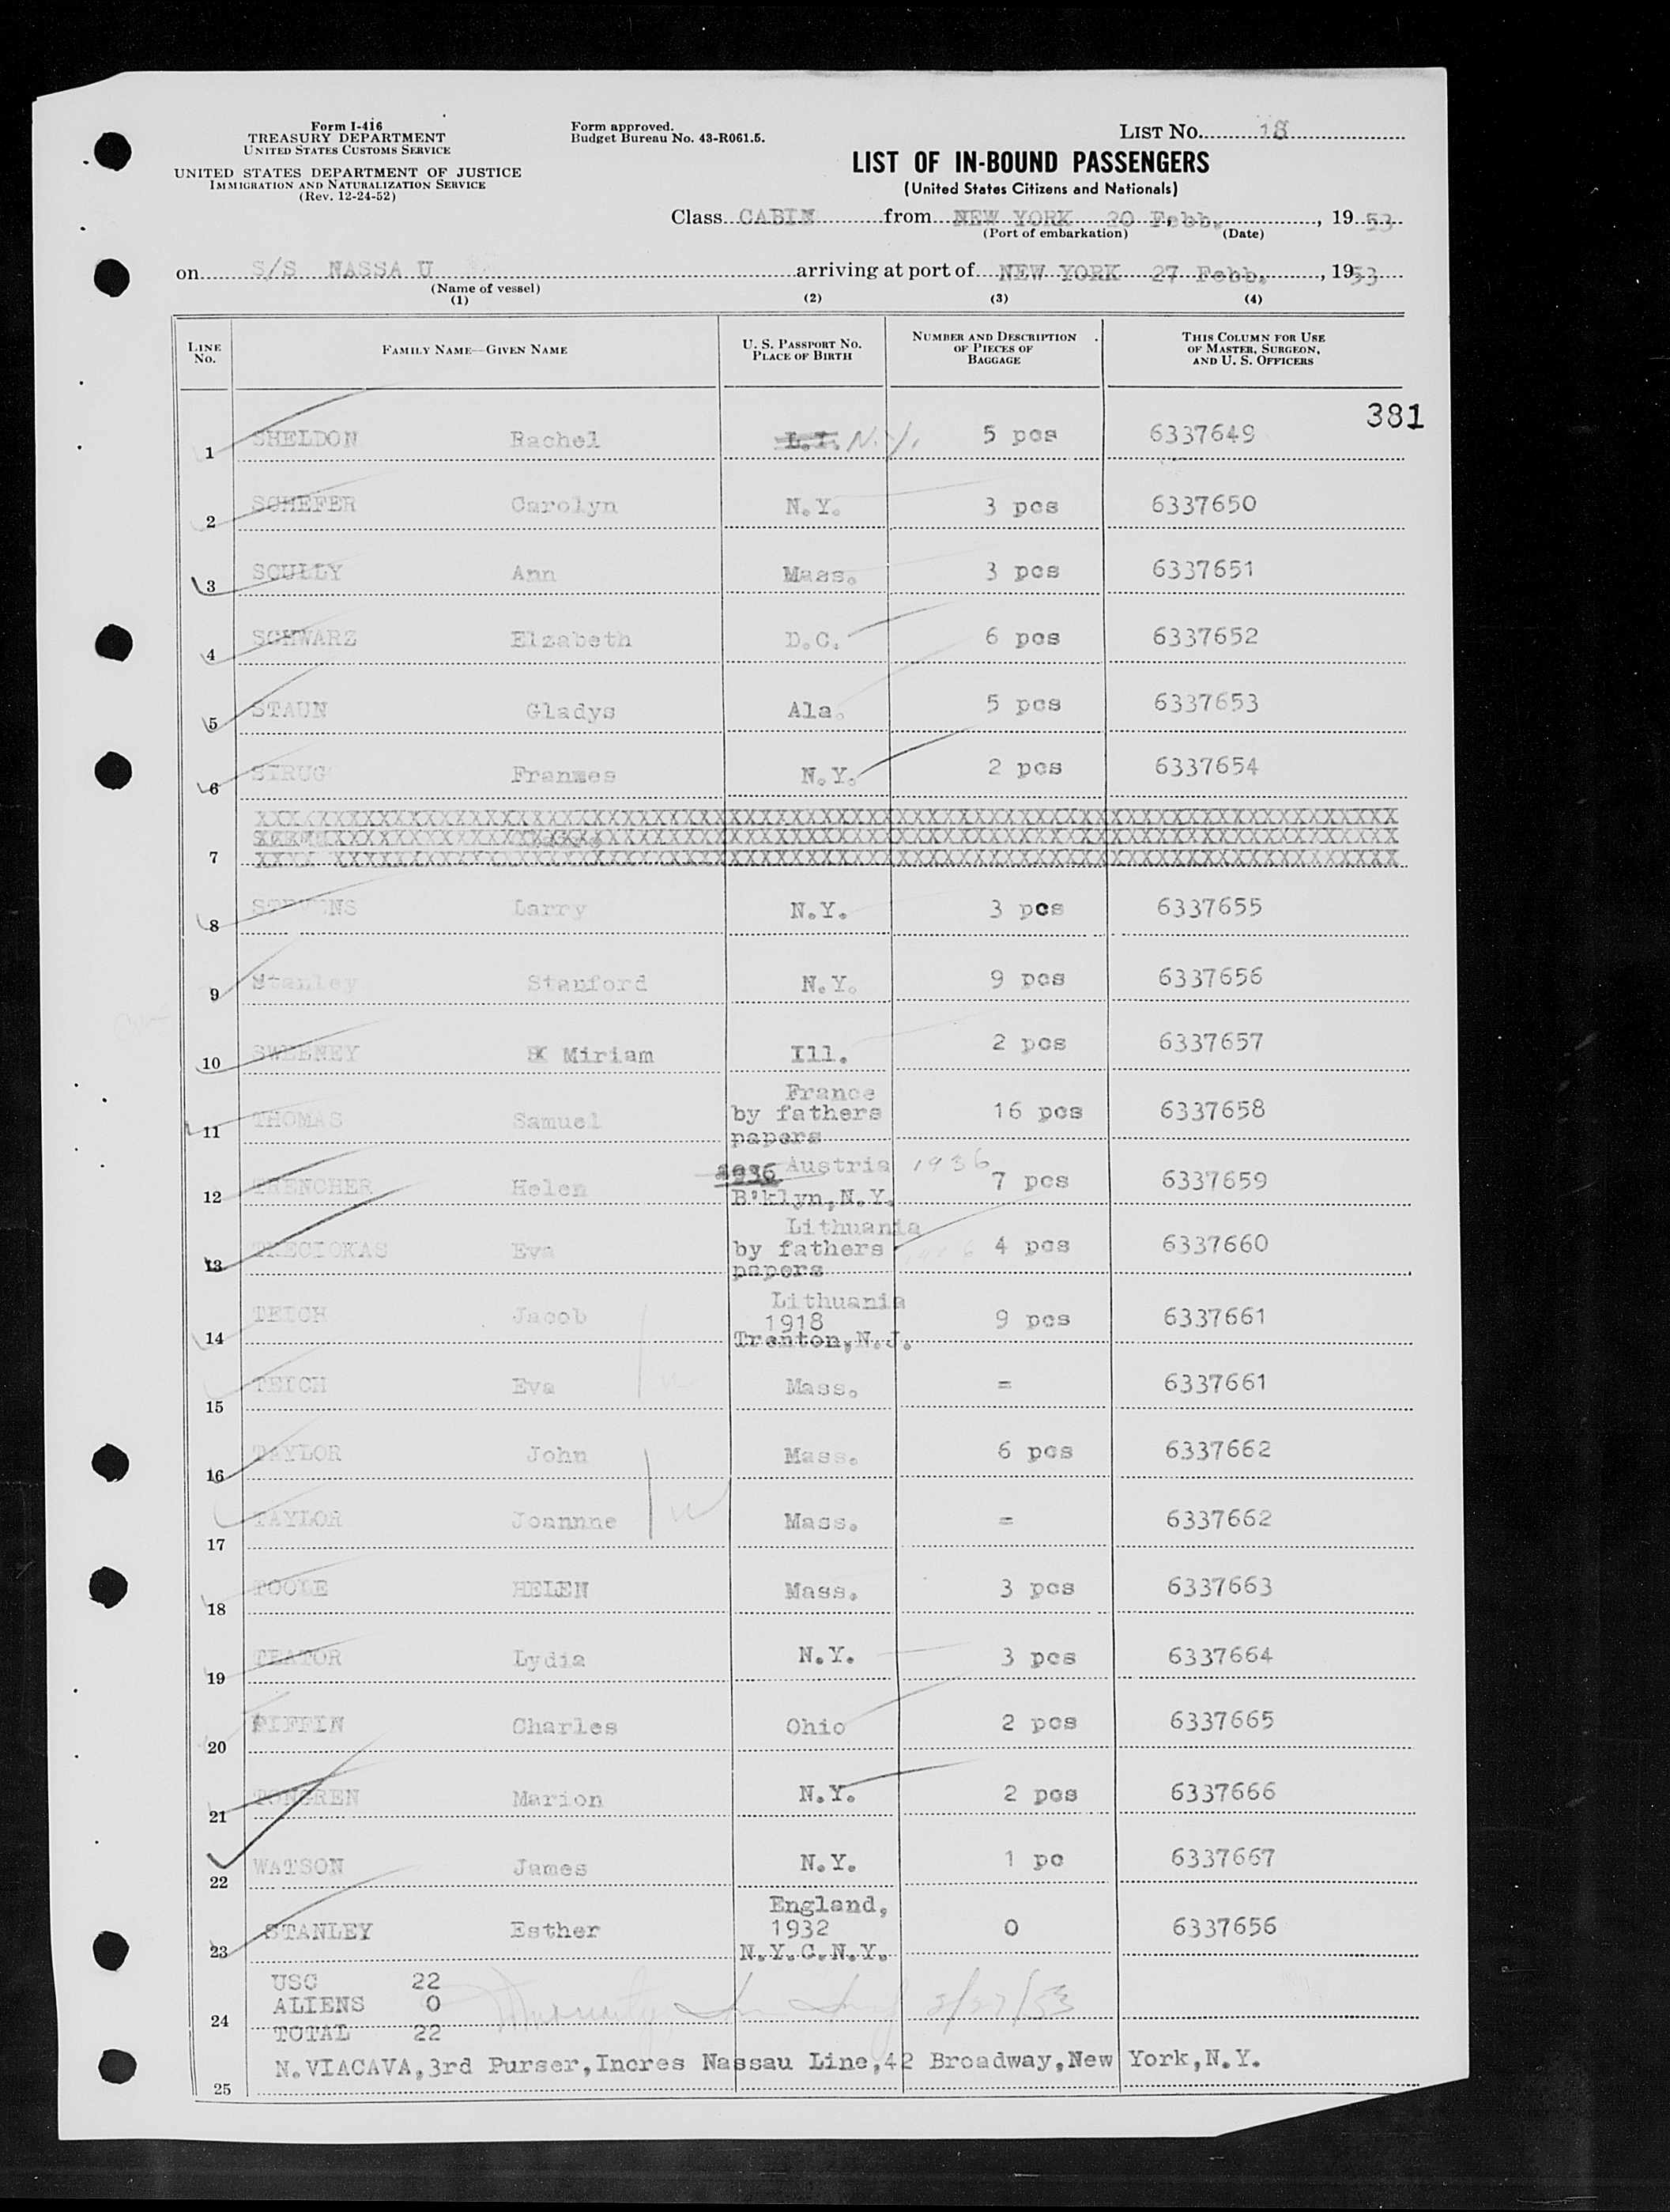 Form I-416
TREASURY DEPARTMENT
UNITED STATES CUSTOMS SERVICE
UNITED STATES DEPARTMENT OF JUSTICE
IMMIGRATION AND NATURALIZATION SERVICE
(Rev. 12-24-52)
Form approved.
Budget Bureau No. 43-R061.5.
LIST No. 18
LIST OF IN-BOUND PASSENGERS
(United States Citizens and Nationals)
Class CABIN from NEW YORK 20 Febb. , 19 53
(Port of embarkation) (Date)
on S/S NASSA U arriving at port of NEW YORK 27 Febb. , 1953
(Name of vessel)
(1) (2) (3) (4)
LINE No. FAMILY NAME—GIVEN NAME U. S. PASSPORT NO. PLACE OF BIRTH NUMBER AND DESCRIPTION OF PIECES OF BAGGAGE THIS COLUMN FOR USE OF MASTER, SURGEON, AND U. S. OFFICERS
381
1 SHELDON Rachel L.I. N.Y. 5 pcs 6337649
2 SCHEFER Carolyn N.Y. 3 pcs 6337650
3 SCULLY Ann Mass. 3 pcs 6337651
4 SCHWARZ Elzabeth D.C. 6 pcs 6337652
5 STAUN Gladys Ala. 5 pcs 6337653
6 STRUG N.Y. 2 pcs 6337654
7
8 Larry N.Y. 3 pcs 6337655
9 Stanley Stanford N.Y. 9 pcs 6337656
10 SWEENEY Miriam Ill. 2 pcs 6337657
11 THOMAS Samuel France by fathers papers 16 pcs 6337658
12 TRENCHER Helen 1936 Austria 1936 B'klyn,N.Y. 7 pcs 6337659
13 TRECIOKAS Eva Lithuania by fathers papers 4 pcs 6337660
14 TEICH Jacob Lithuania 1918 Trenton,N.J. 9 pcs 6337661
15 TEICH Eva Mass. = 6337661
16 TAYLOR John Mass. 6 pcs 6337662
17 TAYLOR Joannne Mass. = 6337662
18 TOOLE HELEN Mass. 3 pcs 6337663
19 TEATOR Lydia N.Y. 3 pcs 6337664
20 Charles Ohio 2 pcs 6337665
21 TONGREN Marion N.Y. 2 pcs 6337666
22 WATSON James N.Y. 1 pc 6337667
23 STANLEY Esther England, 1932 N.Y.C.N.Y. 0 6337656
USC 22
ALIENS 0
24
TOTAL 22
2/27/53
N.VIACAVA,3rd Purser,Incres Nassau Line,42 Broadway,New York,N.Y.
25